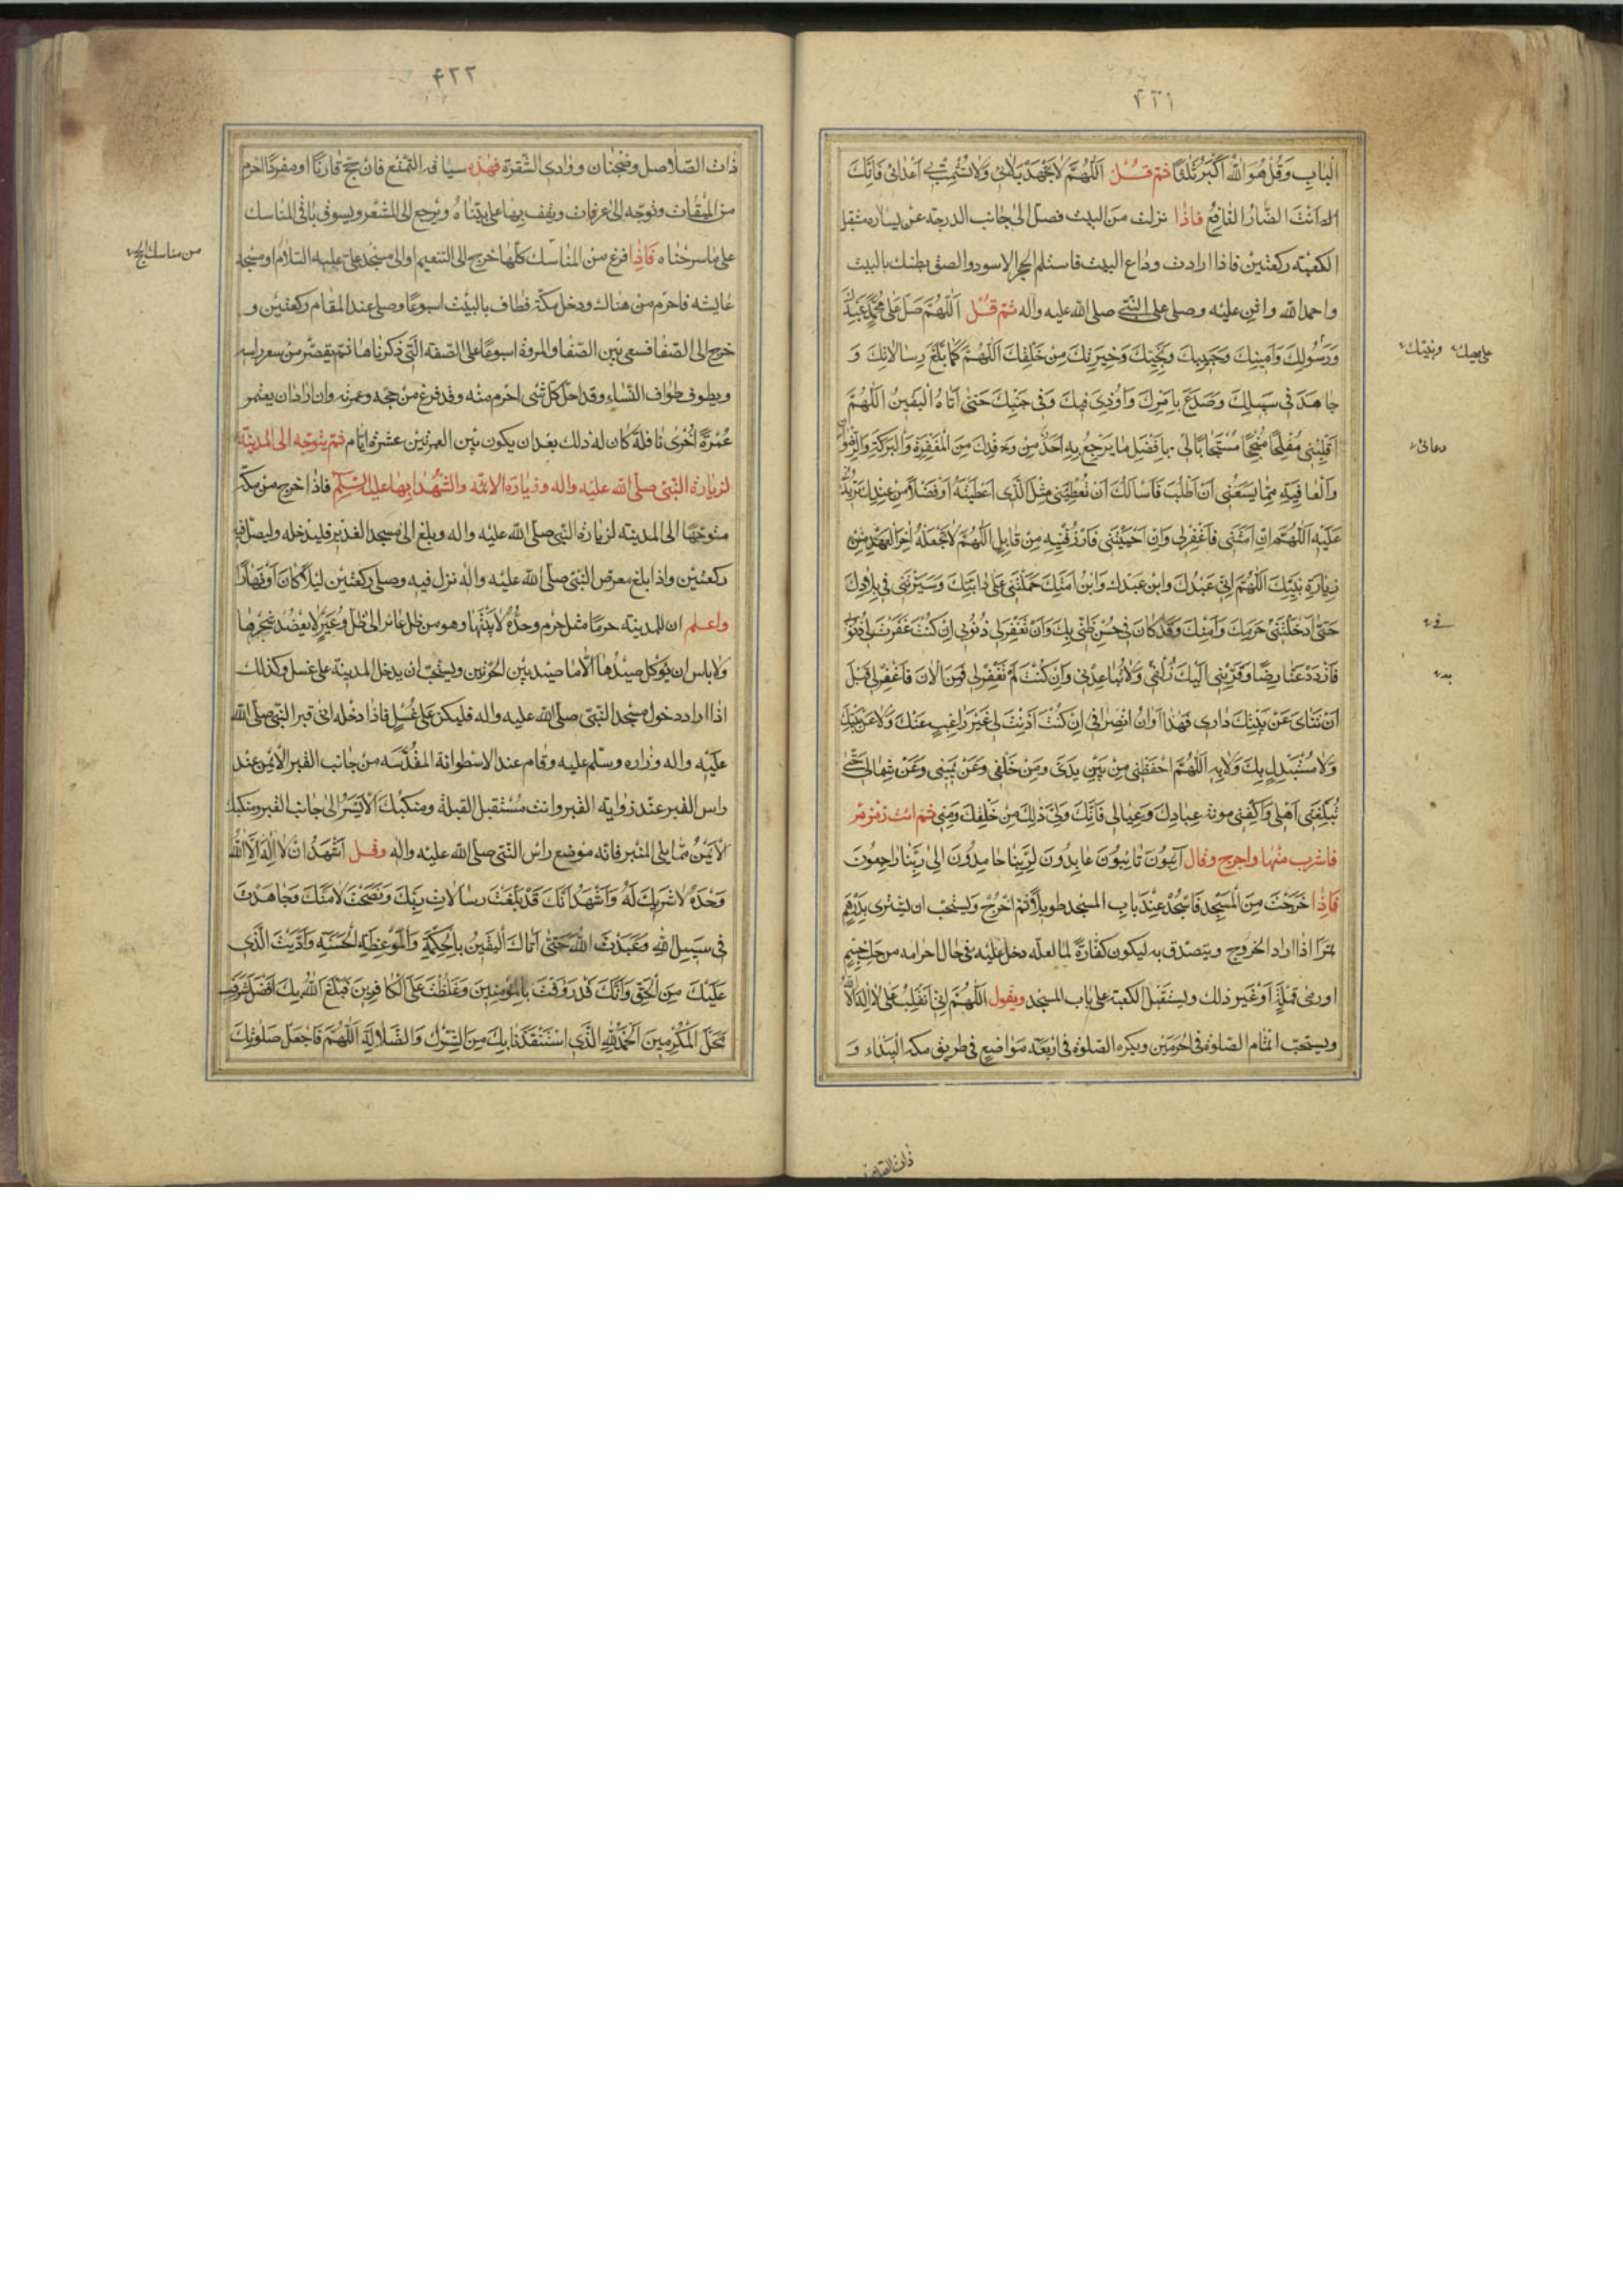 ۴۲۱
الْبابِ وَقُلْ هُوَ اللّٰهُ اَكْبَرُ ثَلٰثًا ثم قـل اَللّٰهُمَّ لاتَجْهَدْ بَلائى وَلاتُشْمِتْ بى اَعْدائى فَاِنَّكَ
اَنْتَ الضّارُ النّافِعُ فاذا نزلت من البيت فصلّ الى جانب الدرجة عن يساره مستقبل
الكعبة ركعتين فاذا اردت وداع البيت فاستلم الحجر الاسود والصق بطنك بالبيت
واحمد اللّٰه واثن عليه وصلى على النّبى صلى اللّٰه عليه واله ثم قـل اَللّٰهُمَّ صَلِّ عَلى مُحَمَّدٍ عَبْدِكَ
وَرَسُولِكَ وَاَمينِكَ وَحَبيبِكَ وَنَجِيِّكَ وَخِيَرَتِكَ مِنْ خَلْقِكَ اَللّٰهُمَّ كَما بَلَّغَ رِسالاتِكَ وَ
جاهَدَ فى سَبيلِكَ وَصَدَعَ بِاَمْرِكَ وَاُوذِىَ فيكَ وَفى جَنْبِكَ حَتّى اَتاهُ الْيَقينُ اَللّٰهُمَّ
اَقْلِبْنى مُفْلِحًا مُنْجِحًا مُسْتَجابًا لى بِاَفْضَلِ ما يَرْجِعُ بِهِ اَحَدٌ مِنْ وَفْدِكَ مِنَ الْمَغْفِرَةِ وَالْبَرَكَةِ وَالرِّضْوانِ
وَالْعافِيَةِ مِمّا يَسَعُنى اَنْ اَطْلُبَ فَاَسْاَلُكَ اَنْ تُعْطِيَنى مِثْلَ الَّذى اَعْطَيْتَهُ اَوْ فَضْلًا مِنْ عِنْدِكَ تَزيدُنى
عَلَيْهِ اَللّٰهُمَّ اِنْ اَمَتَّنى فَاغْفِرْلى وَاِنْ اَحْيَيْتَنى فَارْزُقْنيهِ مِنْ قابِلٍ اَللّٰهُمَّ لا تَجْعَلْهُ اخِرَ الْعَهْدِ مِنْ
زِيارَةِ بَيْتِكَ اَللّٰهُمَّ اِنّى عَبْدُكَ وابْن عَبْدِك وَابْنُ اَمَتِكَ حَمَلْتَنى عَلى دابَّتِكَ وَسَيَّرْتَنى فى بِلادِكَ
حَتّى اَدْخَلْتَنى حَرَمَكَ وَاَمْنَكَ وَقَدْ كانَ فى حُسْنِ ظَنّى بِكَ وَاَنْ تَغْفِرَلى ذُنُوبى اِنْ كُنْتَ غَفَرْتَ لى ذُنُوبى
فَازْدَدْ عَنّا رِضًا وَقَرِّبْنى اِلَيْكَ زُلْفى وَلاتُباعِدْنى وَاِنْ كُنْتَ لَمْ تَغْفِرْلى فَمِنَ الْانَ فَاغْفِرْلى قَبْلَ
اَنْ تَنْاى عَنْ بَيْتِكَ دارى فَهٰذا اَوانُ انْصِرافى اِنْ كُنْتَ اَذِنْتَ لى غَيْرَ راغِبٍ عَنْكَ وَلا عَنْ بَيْتِكَ
وَلا مُسْتَبْدِلٍ بِكَ وَلا بِهِ اَللّٰهُمَّ احْفَظْنى مِنْ بَيْنِ يَدَىَّ وَمِنْ خَلْفى وَعَنْ يَمينى وَعَنْ شِمالى حَتّى
تُبَلِّغَنى اَهْلى وَاكْفِنى مؤنة عِبادِكَ وَعِيالى فَاِنَّكَ وَلِىُّ ذٰلِكَ مِنْ خَلْقِكَ وَمِنّى ثم ائت زمزم
فاشرب منها واخرج وقال آئِبُونَ تائِبُونَ عابِدُونَ لِرَبِّنا حامِدُونَ اِلى رَبِّنا راجِعُونَ
فَاِذا خَرَجْتَ مِنَ الْمَسْجِدِ فَاسْجُدْ عِنْدَ باب المسجد طويلًا ثم اخْرُجْ ويستحب ان يشترى بدرهم
تمرًا اذا اراد الخروج ويتصدق به ليكون كفارةً لما لعلّه دخل عليه فى حال احرامه من حك جسم
اورمى قملةٍ اَوْ غير ذلك ويستقبل الكعبة على باب المسجد ويقول اللّٰهمّ اِنّى اَنْقَلِبُ عَلى لا اِلٰهَ اِلَّا اللّٰهُ
ويستحبّ اتمام الصلوة فى الحرمين ويكره الصلوة فى اربعة مواضع فى طريق مكة البيداء و
دعائى
فى
ذات الصلاصل
۴۲۲
ذات الصّلاصل وضجنان ووادى الشّقرة فهذه سياقة التّمتّع فان حجّ قارنًا او مفردًا احرم
من الميقات وتوجّه الى عرفات ويقف بها على بيّناه ويرجع الى المشعر ويسوق باقى المناسك
على ما شرحناه فَاِذا فرغ من المناسك كلّها خرج الى التنعيم او الى مسجد علىّ عليه السّلام او مسجد
عايشه فاحرم من هناك ودخل مكّة فطاف بالبيت اسبوعًا وصلى عند المقام ركعتين و
خرج الى الصّفا فسعى بين الصّفا والمروة اسبوعًا على الصّفة الّتى ذكرناها ثم يقصّر من شعر راسه
ويطوف طواف النّساء وقد احلّ كلّ شى احرم منه وقد فرغ من حجّه وعمرته وان اراد ان يعتمر
عُمْرَةً اُخْرى نافلةً كان له ذلك بعد ان يكون بين العمرتين عشرة ايّام ثم يتوجه الى المدينة
لزيارة النّبى صلّى اللّٰه عليه واله وزيارة الائمّه والشّهداء بها عليهم السّلم فاذا خرج من مكّة
متوجّهًا الى المدينة لزيارة النّبى صلّى اللّٰه عليه واله وبلغ الى مسجد الغدير فليدخله وليصلّ فيه
ركعتين واذا بلغ معرّس النّبى صلّى اللّٰه عليه واله نزل فيه وصلى ركعتين ليلًا كان او نهارًا
واعـلم ان للمدينة حرمًا مثل حرم وحدّه لابتيها وهو من ظل عائر الى ظل وعير لا يعضد شجرها
ولا باس ان يؤكل صيدها الّا ما صيد بين الحرّتين ويستحبّ ان يدخل المدينة على غسل وكذلك
اذا اراد دخول مسجد النّبى صلى اللّٰه عليه واله فليكن على غُسْلٍ فاذا دخله اتى قبر النّبى صلّى اللّٰه
عليه واله وزاره وسلّم عليه وقام عند الاسطوانة المقدّسه من جانب القبر الايمن عند
راس القبر عند زواية القبر وانت مُسْتقبل القبلة ومنكبُكَ الْاَيْسَرُ الى جانب القبر ومنكبك
الْاَيْمَنُ ممّا يلى المنبر فانّه موضع راس النّبى صلّى اللّٰه عليه واله وقـل اَشْهَدُ اَنْ لا اِلٰهَ اِلَّا اللّٰهُ
وَحْدَهُ لا شَريكَ لَهُ وَاَشْهَدُ اَنَّكَ قَدْ بَلَّغْتَ رِسالاتِ رَبِّكَ وَنَصَحْتَ لِاُمَّتِكَ وَجاهَدْتَ
فى سَبيلِ اللّٰهِ وَعَبَدْتَ اللّٰهَ حَتّى اَتاكَ الْيَقينُ بِالْحِكْمَةِ وَالْمَوْعِظَةِ الْحَسَنَةِ وَاَدَّيْتَ الَّذى
عَلَيْكَ مِنَ الْحَقِّ وَاَنَّكَ قَدْ رَؤُفْتَ بِالْمُؤْمِنينَ وَغَلَظْتَ عَلَى الْكافِرينَ فَبَلَّغَ اللّٰهُ بِكَ اَفْضَلَ شَرَفِ
مَحَلِّ الْمُكْرَمينَ اَلْحَمْدُ لِلّٰهِ الَّذى اسْتَنْقَذَنا بِكَ مِنَ الشِّرْكِ وَالضَّلالَةِ اَللّٰهُمَّ فَاجْعَلْ صَلَوٰتِكَ
من مناسك الحج